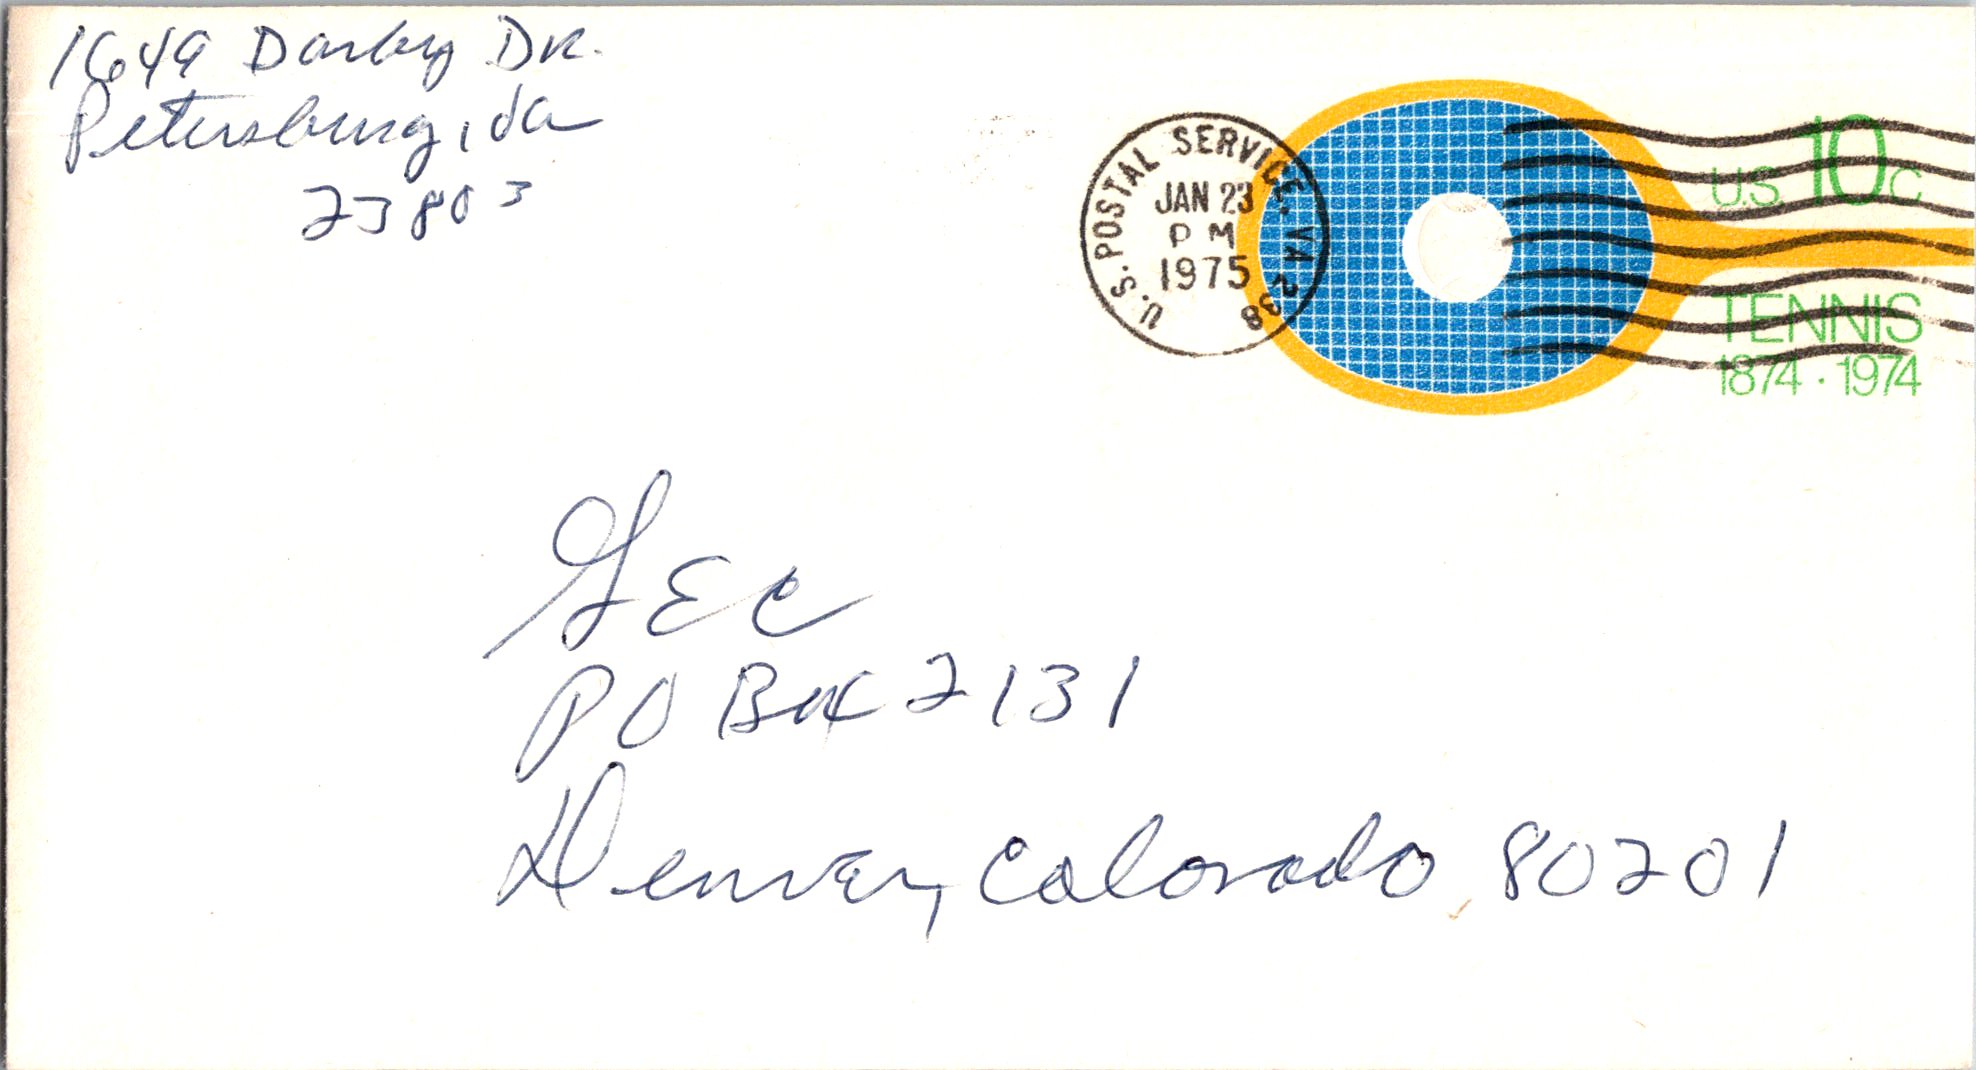 1649 Darby DR.
Petersburg, Va
23803
U.S. POSTAL SERVICE. VA 238
JAN 23
PM
1975
U.S. 10c
TENNIS
1874 · 1974
GEC
PO Box 2131
Denver, Colorado 80201